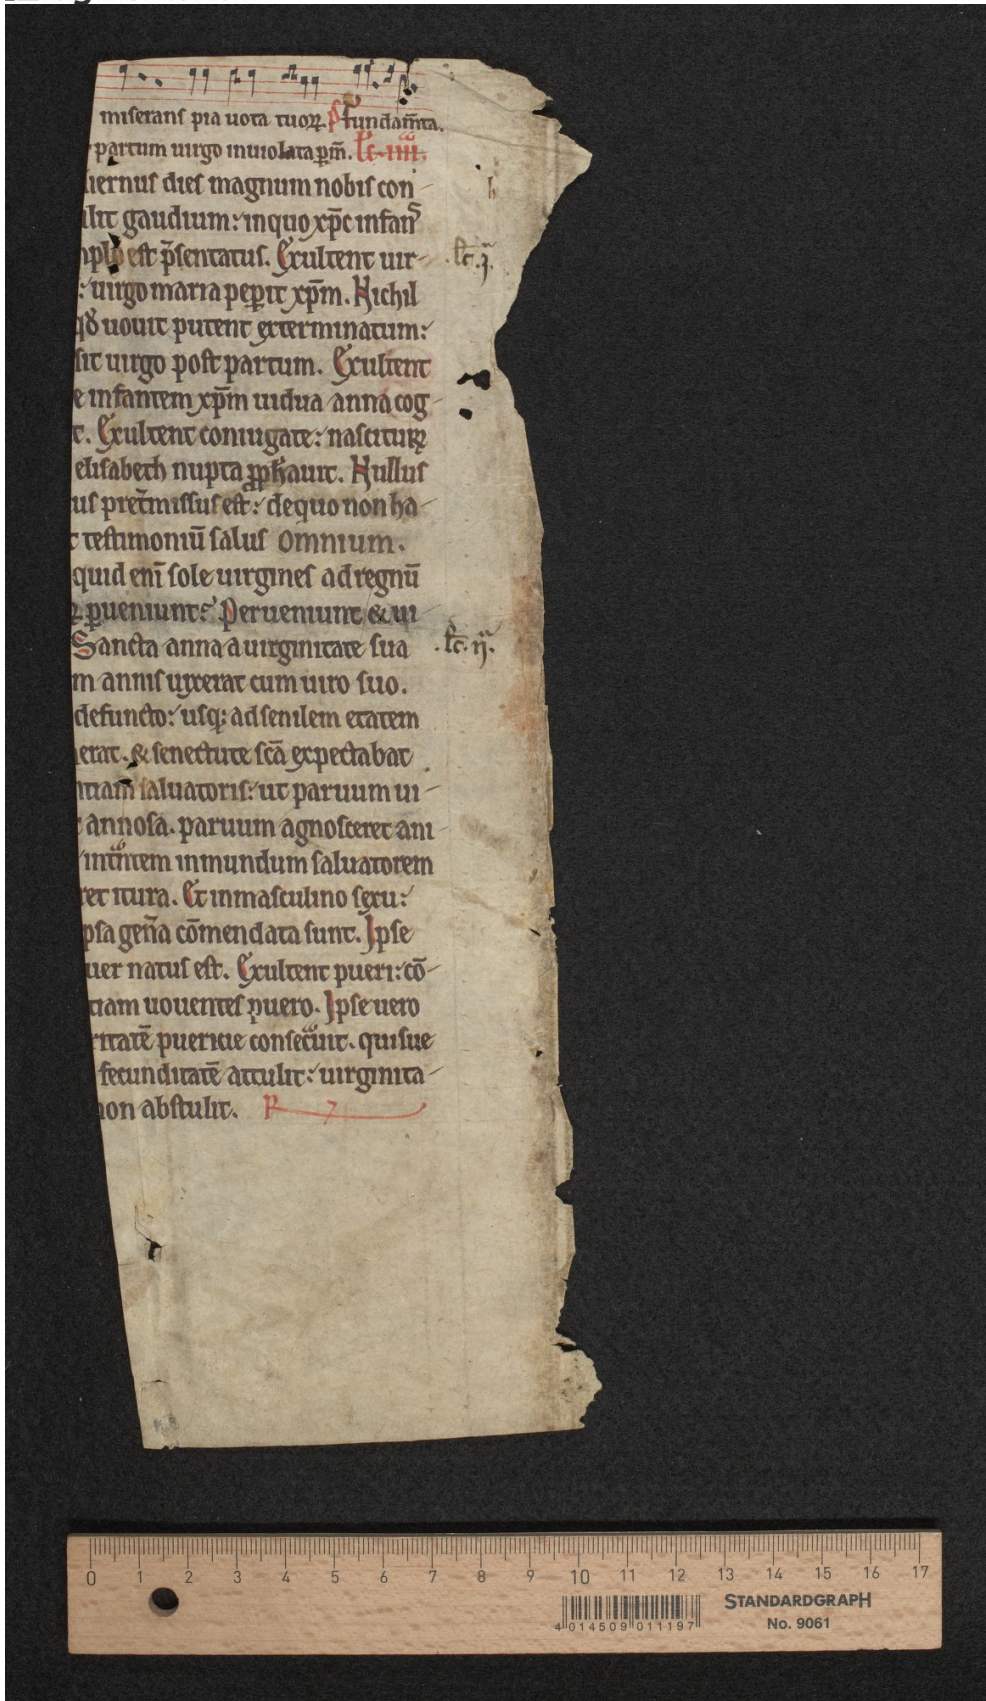 miserans pia uota tuoꝝ. Ps̄ fundam̄ta.
partum uirgo inuiolata ꝑm̄. Lc̄. iiii.
iernus dies magnum nobis con-
lit gaudium: in quo xp̄c infans
est p̄sentatus. Exultent uir- . Lc̄. j.
: uirgo maria peꝑit xp̄m. Nichil
qd̄ uouit putent exterminatum:
sit uirgo post partum. Exultent
e infantem xp̄m uidua anna cog-
t. Exultent coniugate: nasciturꝝ
elisabeth nupta ꝓphauit. Nullus
us pret̄missus est: de quo non ha-
t testimoniū salus omnium.
quid eni sole uirgines ad regnū
ꝑueniunt: Perueniunt & ui-
Sancta anna a uirginitate sua . Lc̄. ij.
m annis uixerat cum uiro suo.
defuncto: usq; ad senilem etatem
erat. & senectute scā expectabat
ntiam saluatoris: ut paruum ui-
t annosa. paruum agnosceret ani
int̄ntem in mundum saluatorem
ret itura. Et in masculino sexu:
psa gen̄a cōmendata sunt. Ipse
uer natus est. Exultent pueri: cō-
tiam uouentes puero. Ipse uero
ritatē puericie consec̄uit. qui sue
fecunditatē attulit: uirginita-
non abstulit. R
0 1 2 3 4 5 6 7 8 9 10 11 12 13 14 15 16 17
STANDARDGRAPH
4 014509 011197 No. 9061